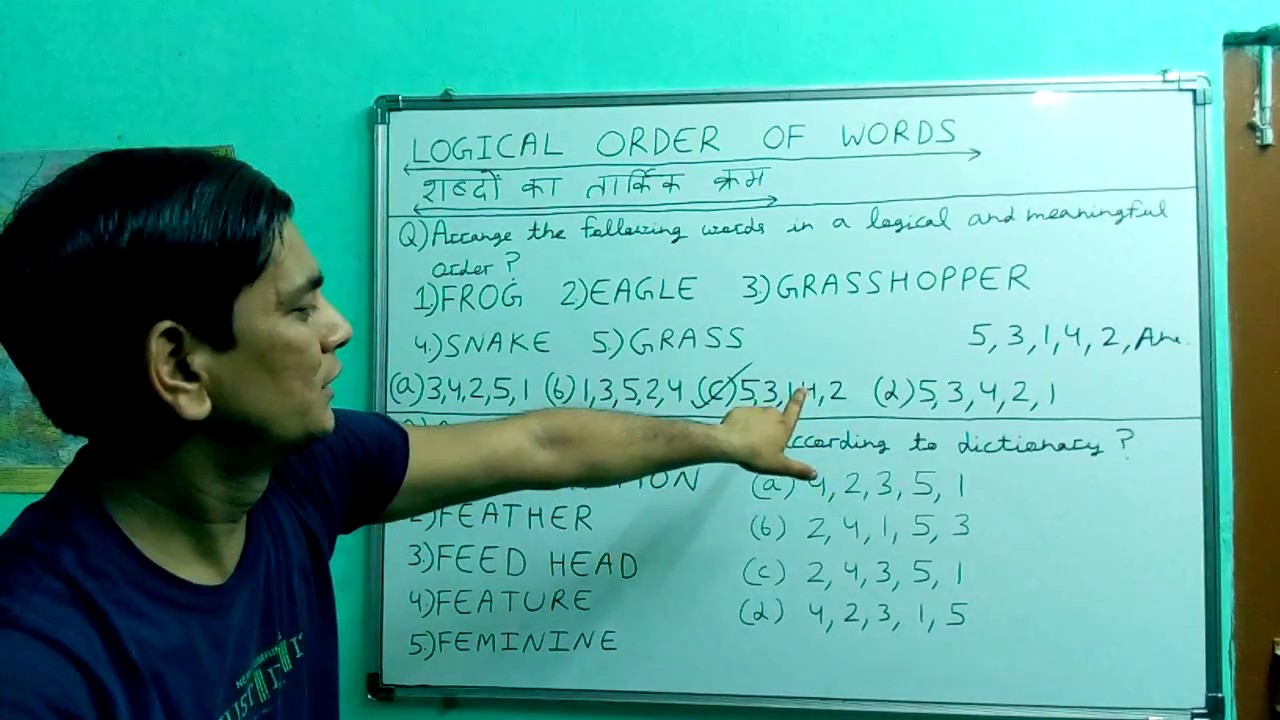 LOGICAL ORDER OF WORDS
शब्दों का तार्किक क्रम
Q) Arrange the following words in a logical and meaningful
order ?
1) FROG 2.) EAGLE 3.) GRASSHOPPER
4.) SNAKE 5.) GRASS 5, 3, 1, 4, 2, Ans.
(a) 3, 4, 2, 5, 1 (b) 1, 3, 5, 2, 4 (c) 5, 3, 1, 4, 2 (d) 5, 3, 4, 2, 1
according to dictionary ?
(a) 4, 2, 3, 5, 1
2) FEATHER (b) 2, 4, 1, 5, 3
3.) FEED HEAD (c) 2, 4, 3, 5, 1
4) FEATURE (d) 4, 2, 3, 1, 5
5.) FEMININE